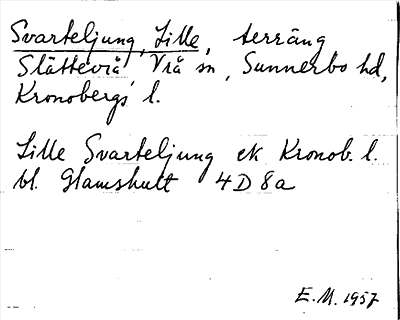 Svarteljung, Lille, terräng
Slättevrå, Vrå sn, Sunnerbo hd,
Kronobergs l.
Lille Svarteljung ek Kronob. l.
bl. Glamshult 4D 8a
E.M. 1957